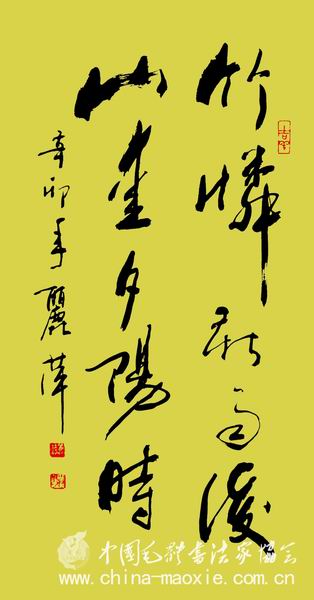 竹憐新雨後
山愛夕陽時
辛卯年麗萍
中國毛體書法家協会
www.china-maoxie.com.cn